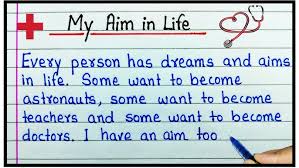 My Aim in Life
Every person has dreams and aims
in life. Some want to become
astronauts, some want to become
teachers and some want to become
doctors. I have an aim too